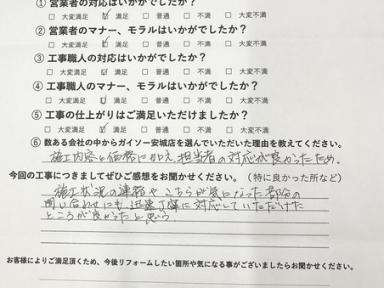 ① 営業者の対応はいかがでしたか?
□ 大変満足 ☑ 満足 □ 普通 □ 不満 □ 大変不満
② 営業者のマナー、モラルはいかがでしたか?
□ 大変満足 ☑ 満足 □ 普通 □ 不満 □ 大変不満
③ 工事職人の対応はいかがでしたか?
□ 大変満足 ☑ 満足 □ 普通 □ 不満 □ 大変不満
④ 工事職人のマナー、モラルはいかがでしたか?
□ 大変満足 ☑ 満足 □ 普通 □ 不満 □ 大変不満
⑤ 工事の仕上がりはご満足いただけましたか?
□ 大変満足 ☑ 満足 □ 普通 □ 不満 □ 大変不満
⑥ 数ある会社の中からガイソー安城店を選んでいただいた理由を教えてください。
施工内容と価格に加え、担当者の対応が良かったため。
今回の工事につきましてぜひご感想をお聞かせください。(特に良かった所など)
施工状況の連絡や こちらが気になった部分の
問い合わせにも 迅速丁寧に対応していただけた
ところが良かったと思う。
お客様によりご満足頂くため、今後リフォームしたい箇所や気になる事がございましたらお聞かせください。